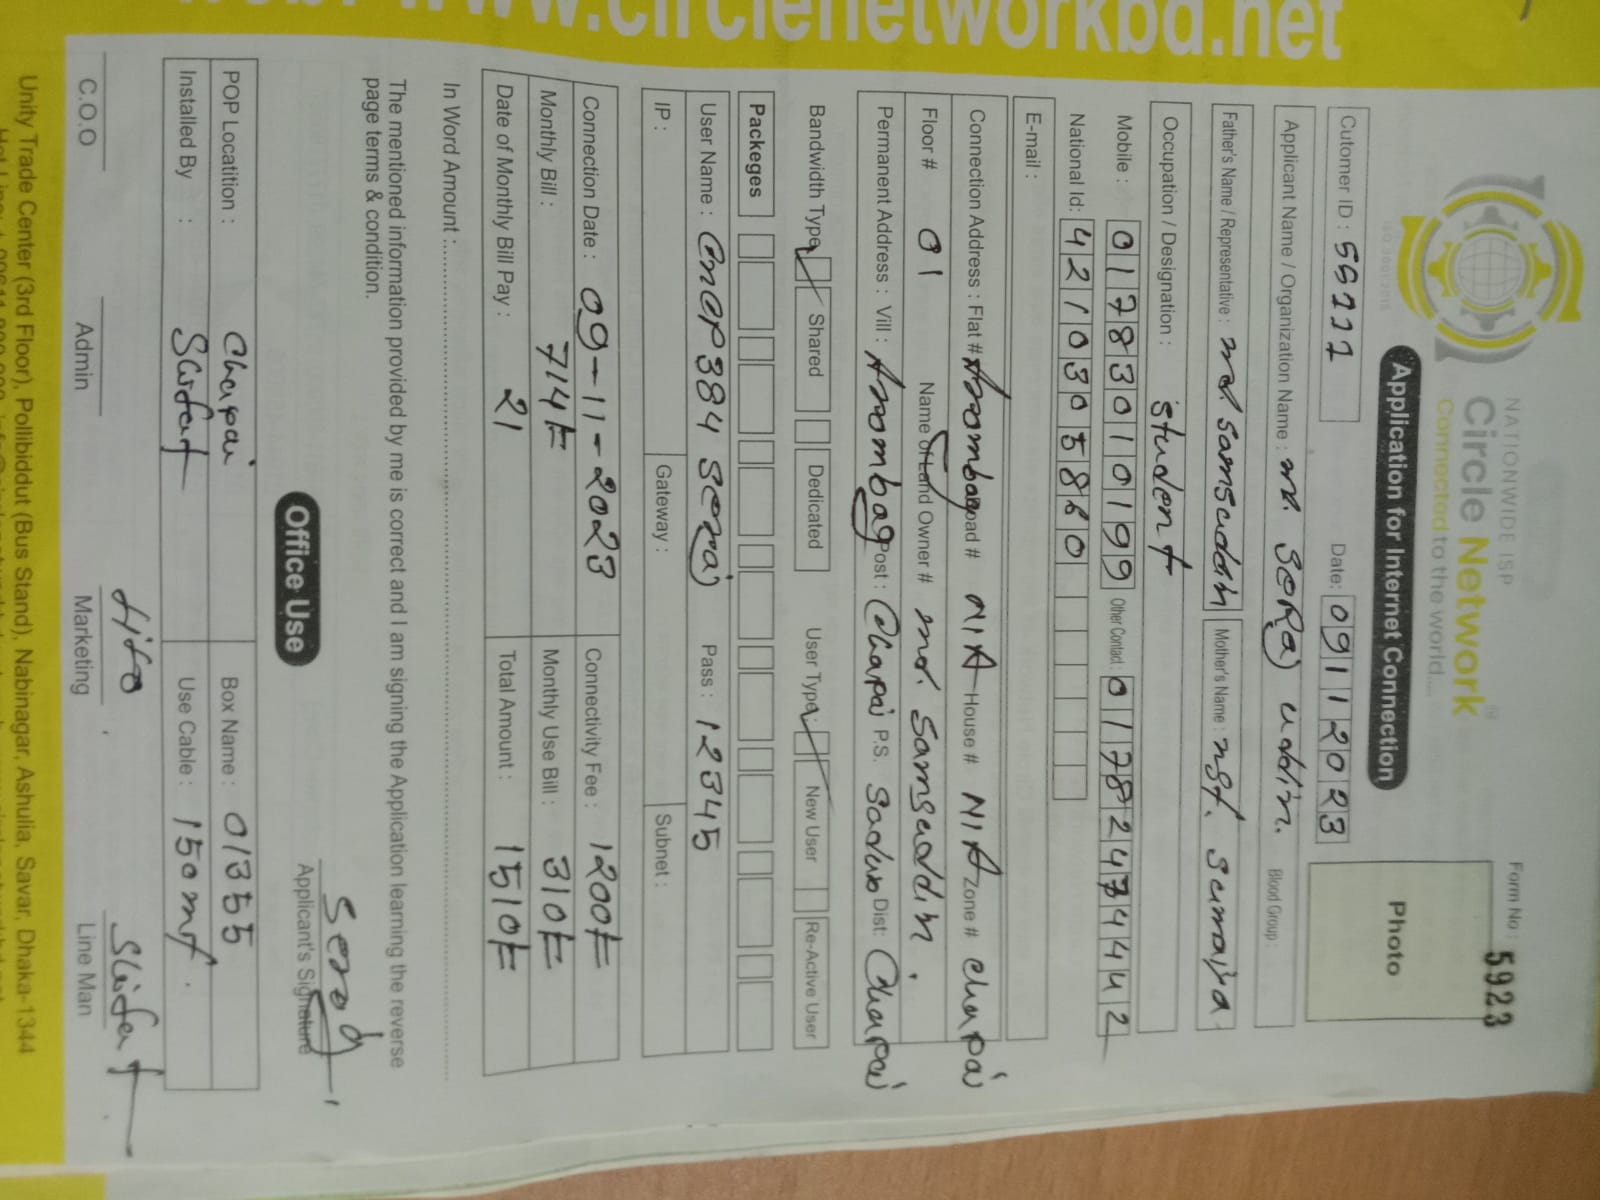 www.circlenetworkbd.net
NATIONWIDE ISP
Circle Network
Connected to the world....
ISO 9001:2015
Form No : 5923
Application for Internet Connection
Photo
Cutomer ID : 56111 Date: 09112023
Applicant Name / Organization Name : md. SeRaj uddin. Blood Group :
Father's Name / Representative : md samsuddin Mother's Name : mst. sumaiya
Occupation / Designation : student
Mobile : 01783010199 Other Contact : 01782474442
National Id: 4210305880
E-mail :
Connection Address : Flat # Arombag Road # N/A House # N/A Zone # chapai
Floor # 01 Name of Land Owner # md. Samsuddin
Permanent Address : Vill : Arombag Post : Chapai P.S. Sadur Dist: Chapai
Bandwidth Type: Shared Dedicated User Type: New User Re-Active User
Packeges
User Name : cncp384 seraj Pass : 12345
IP : Gateway : Subnet :
Connection Date : 09-11-2023 Connectivity Fee : 1200
Monthly Bill : 714 Monthly Use Bill : 310
Date of Monthly Bill Pay : 21 Total Amount : 1510
In Word Amount :
The mentioned information provided by me is correct and I am signing the Application learning the reverse
page terms & condition.
Seraj
Applicant's Signature
Office Use
POP Locatition : Chapai Box Name : 01355
Installed By : Use Cable : 150 mt.
C.O.O Admin Marketing Line Man
Unity Trade Center (3rd Floor), Pollibiddut (Bus Stand), Nabinagar, Ashulia, Savar, Dhaka-1344